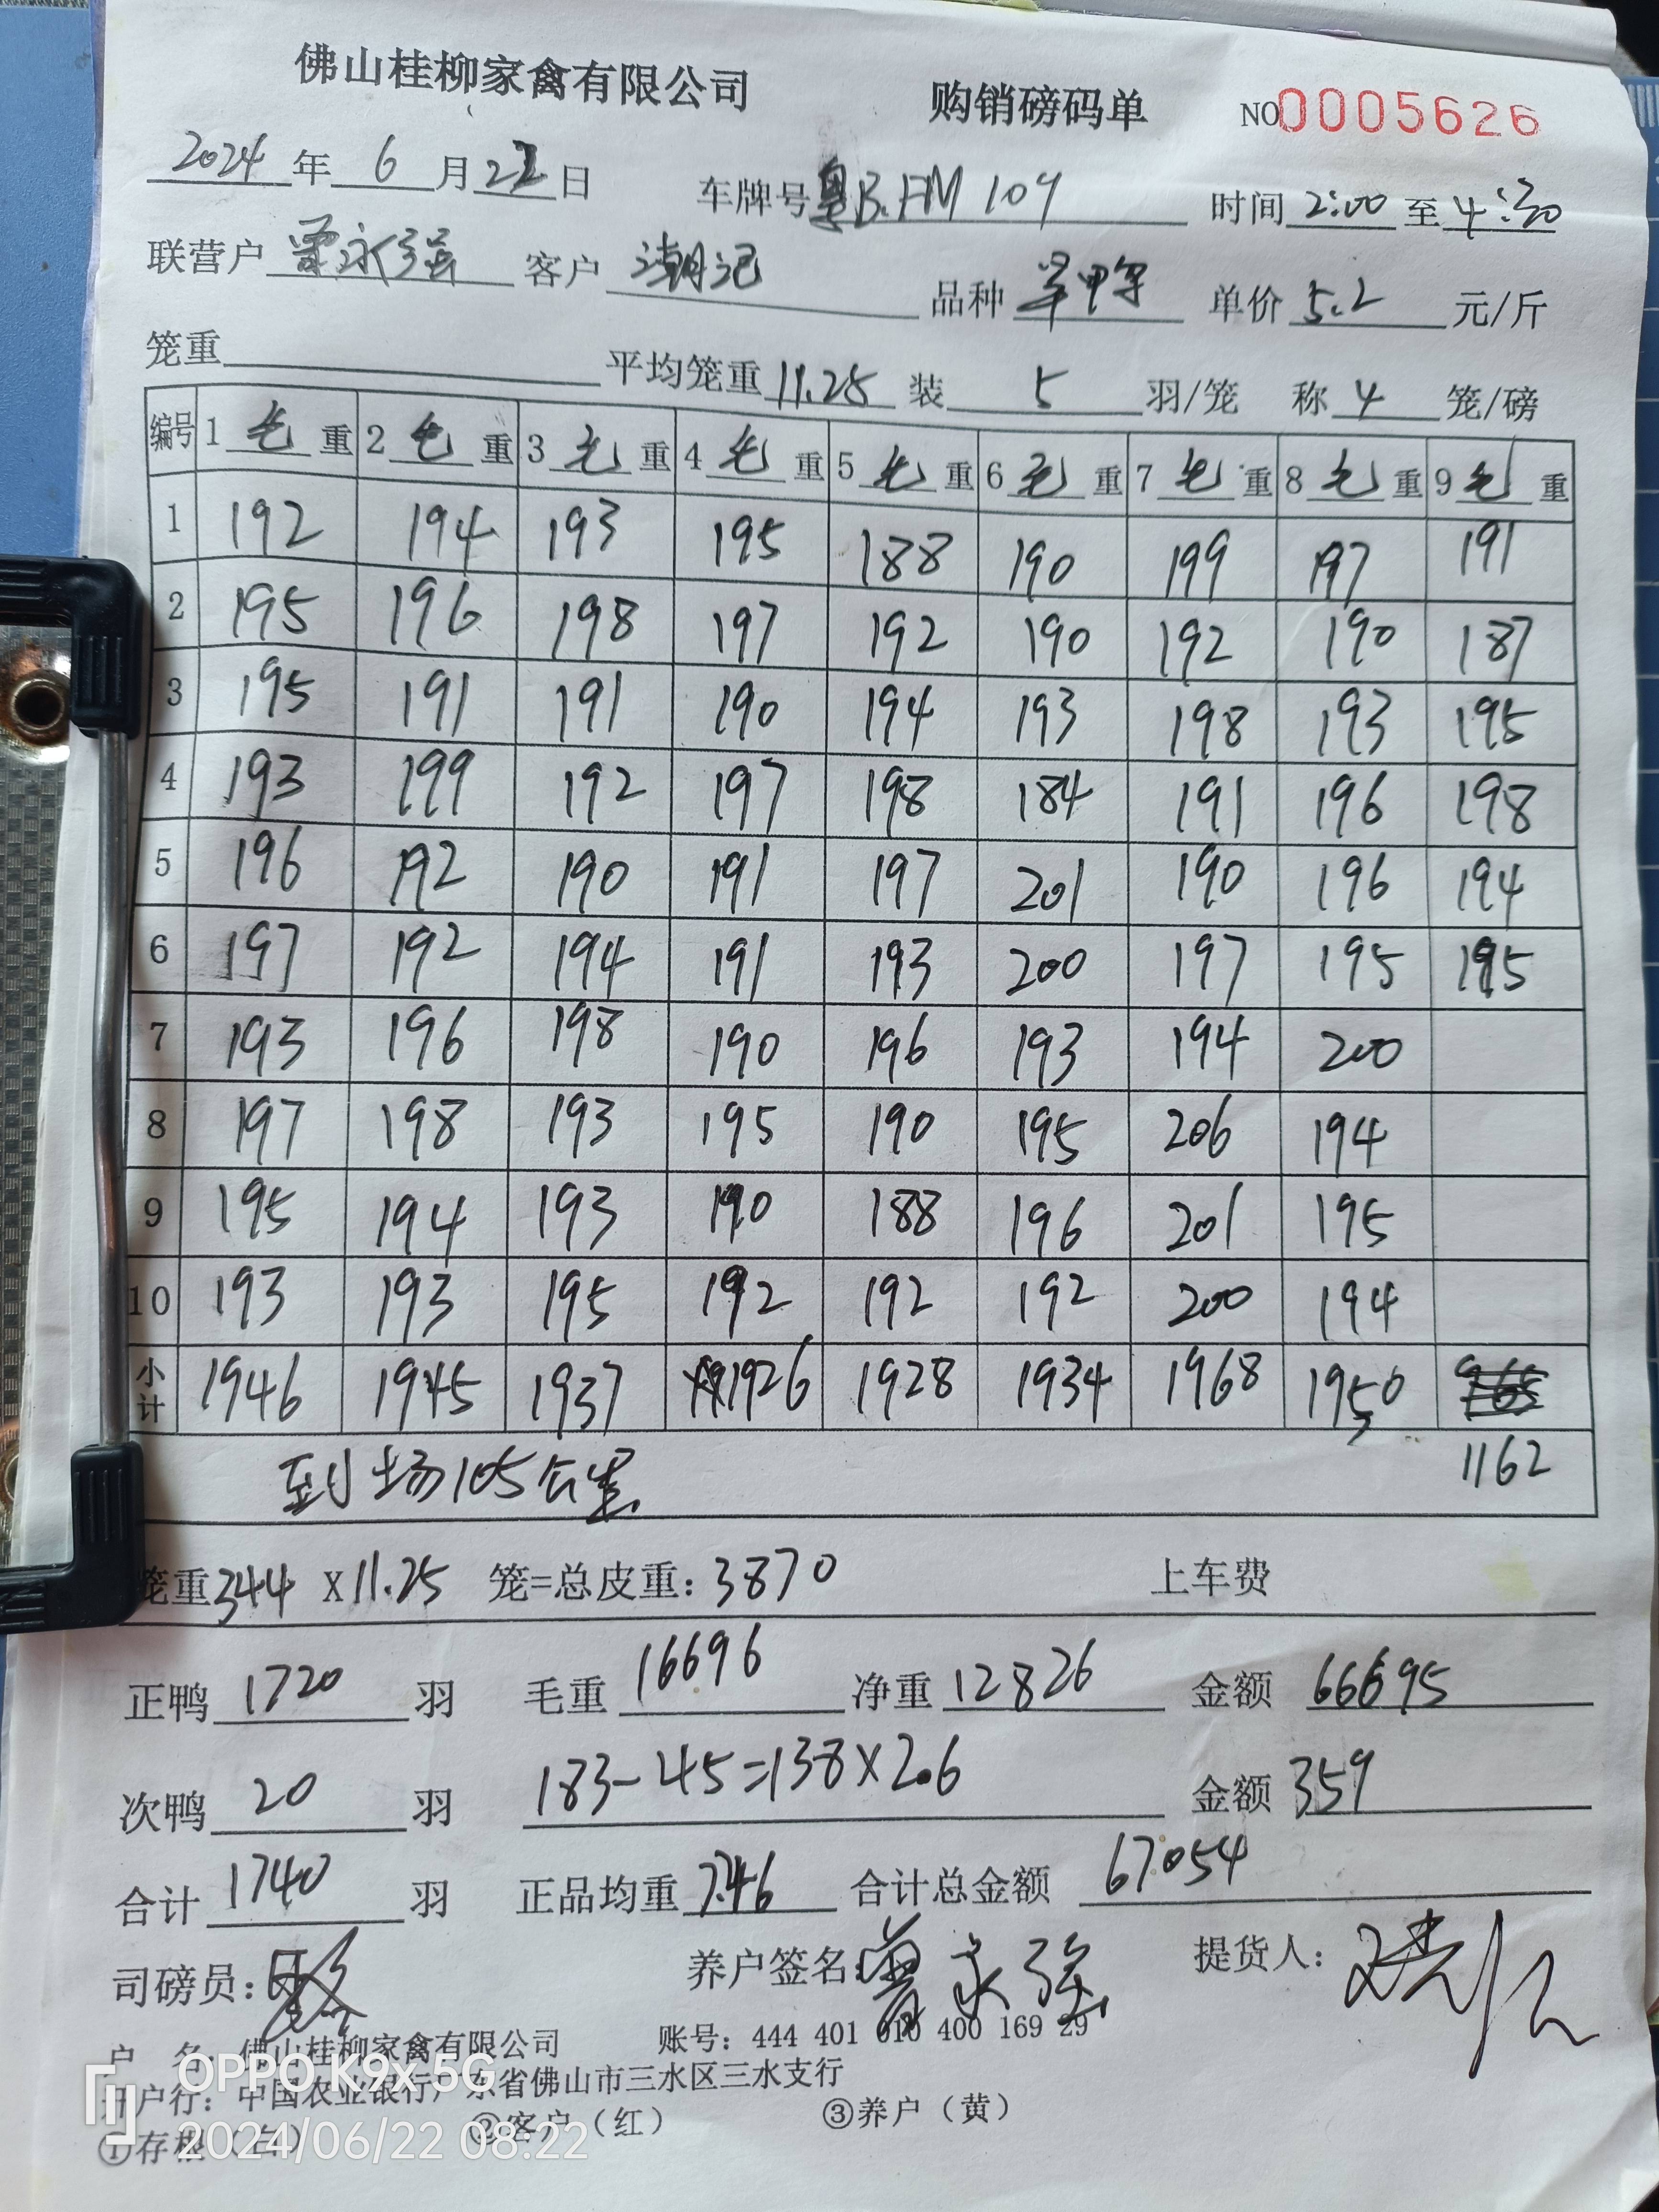 佛山桂柳家禽有限公司 购销磅码单 NO0005626
2024年6月22日 车牌号粤B.FM109 时间2:00至4:30
联营户曾永强 客户潮记 品种 单价5.2元/斤
笼重 平均笼重11.25 装5羽/笼 称4笼/磅
编号 1毛重 2毛重 3毛重 4毛重 5毛重 6毛重 7毛重 8毛重 9毛重
1 192 194 193 195 188 190 199 197 191
2 195 196 198 197 192 190 192 190 187
3 195 191 191 190 194 193 198 193 195
4 193 199 192 197 198 184 191 196 198
5 196 192 190 191 197 201 190 196 194
6 197 192 194 191 193 200 197 195 195
7 193 196 198 190 196 193 194 200
8 197 198 193 195 190 195 206 194
9 195 194 193 190 188 196 201 195
10 193 193 195 192 192 192 200 194
小计 1946 1945 1937 1926 1928 1934 1968 1950
到场105公里 1162
笼重344 X11.25 笼=总皮重：3870 上车费
正鸭1720羽 毛重16696 净重12826 金额66695
次鸭20羽 183-45=138×2.6 金额359
合计1740羽 正品均重7.46 合计总金额67054
司磅员： 养户签名：曾永强 提货人：
户 名：佛山桂柳家禽有限公司 账号：444 401 010 400 169 29
开户行：中国农业银行广东省佛山市三水区三水支行
①存根（白） ②客户（红） ③养户（黄）
OPPO K9x 5G
2024/06/22 08:22